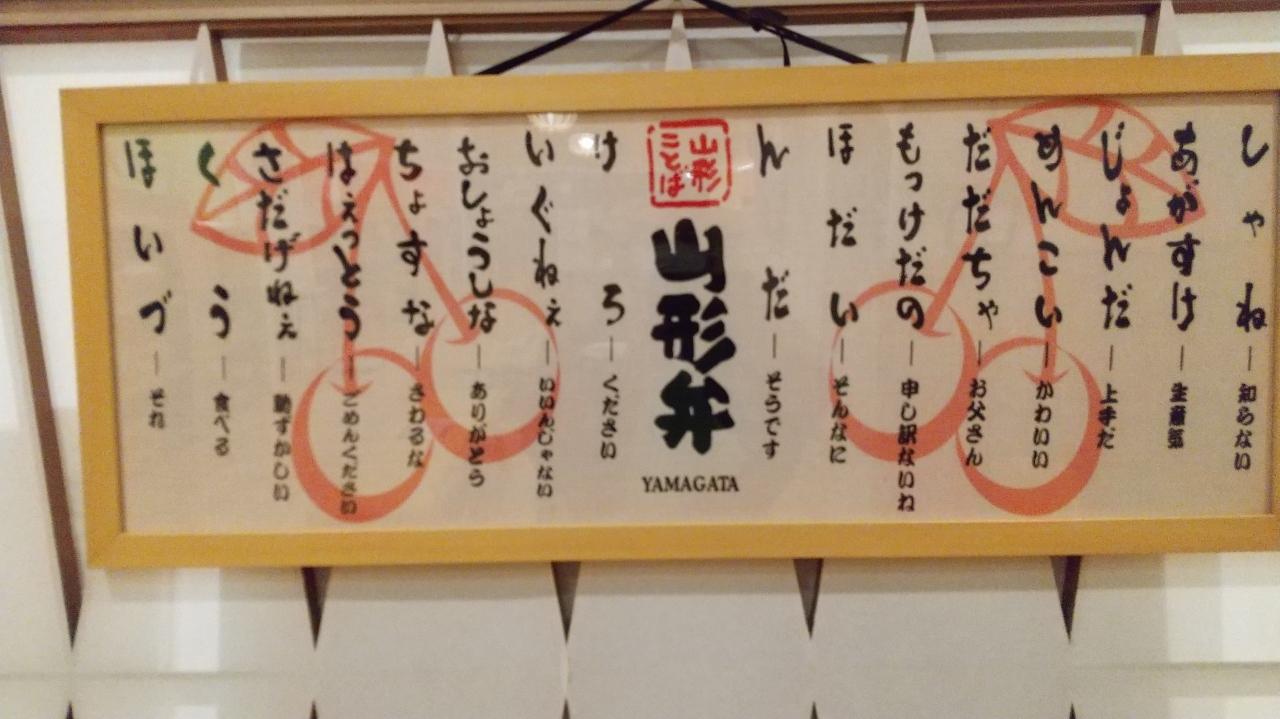 しゃね―知らない
あがすけ―生意気
じょんだ―上手だ
めんこい―かわいい
だだちゃ―お父さん
もっけだの―申し訳ないね
ほだい―そんなに
んだ―そうです
山形
ことば
山形弁
YAMAGATA
けろ―ください
いぐねぇ―いいんじゃない
おしょうしな―ありがとう
ちょすな―さわるな
はえっとう―ごめんください
さだげねぇ―恥ずかしい
くう―食べる
ほいづ―それ